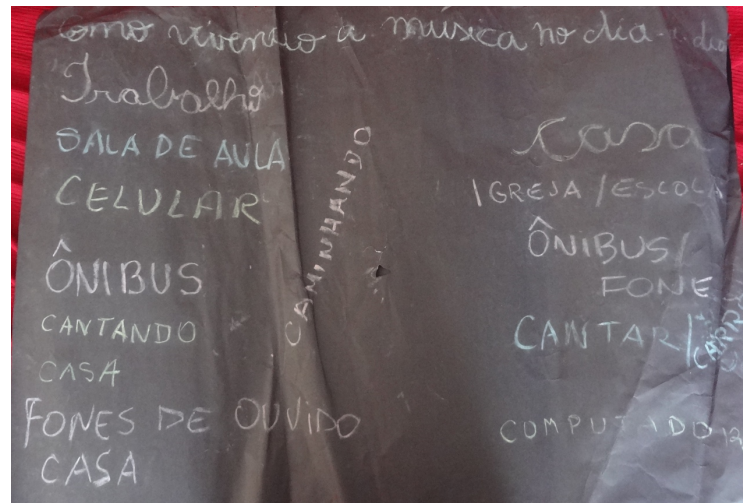 Como vivencio a música no dia-a-dia
Trabalho
SALA DE AULA
CELULAR
ÔNIBUS
CANTANDO
CASA
FONES DE OUVIDO
CASA
CAMINHANDO
Casa
IGREJA / ESCOLA
ÔNIBUS /
FONE
CANTAR / CARRO
COMPUTADOR